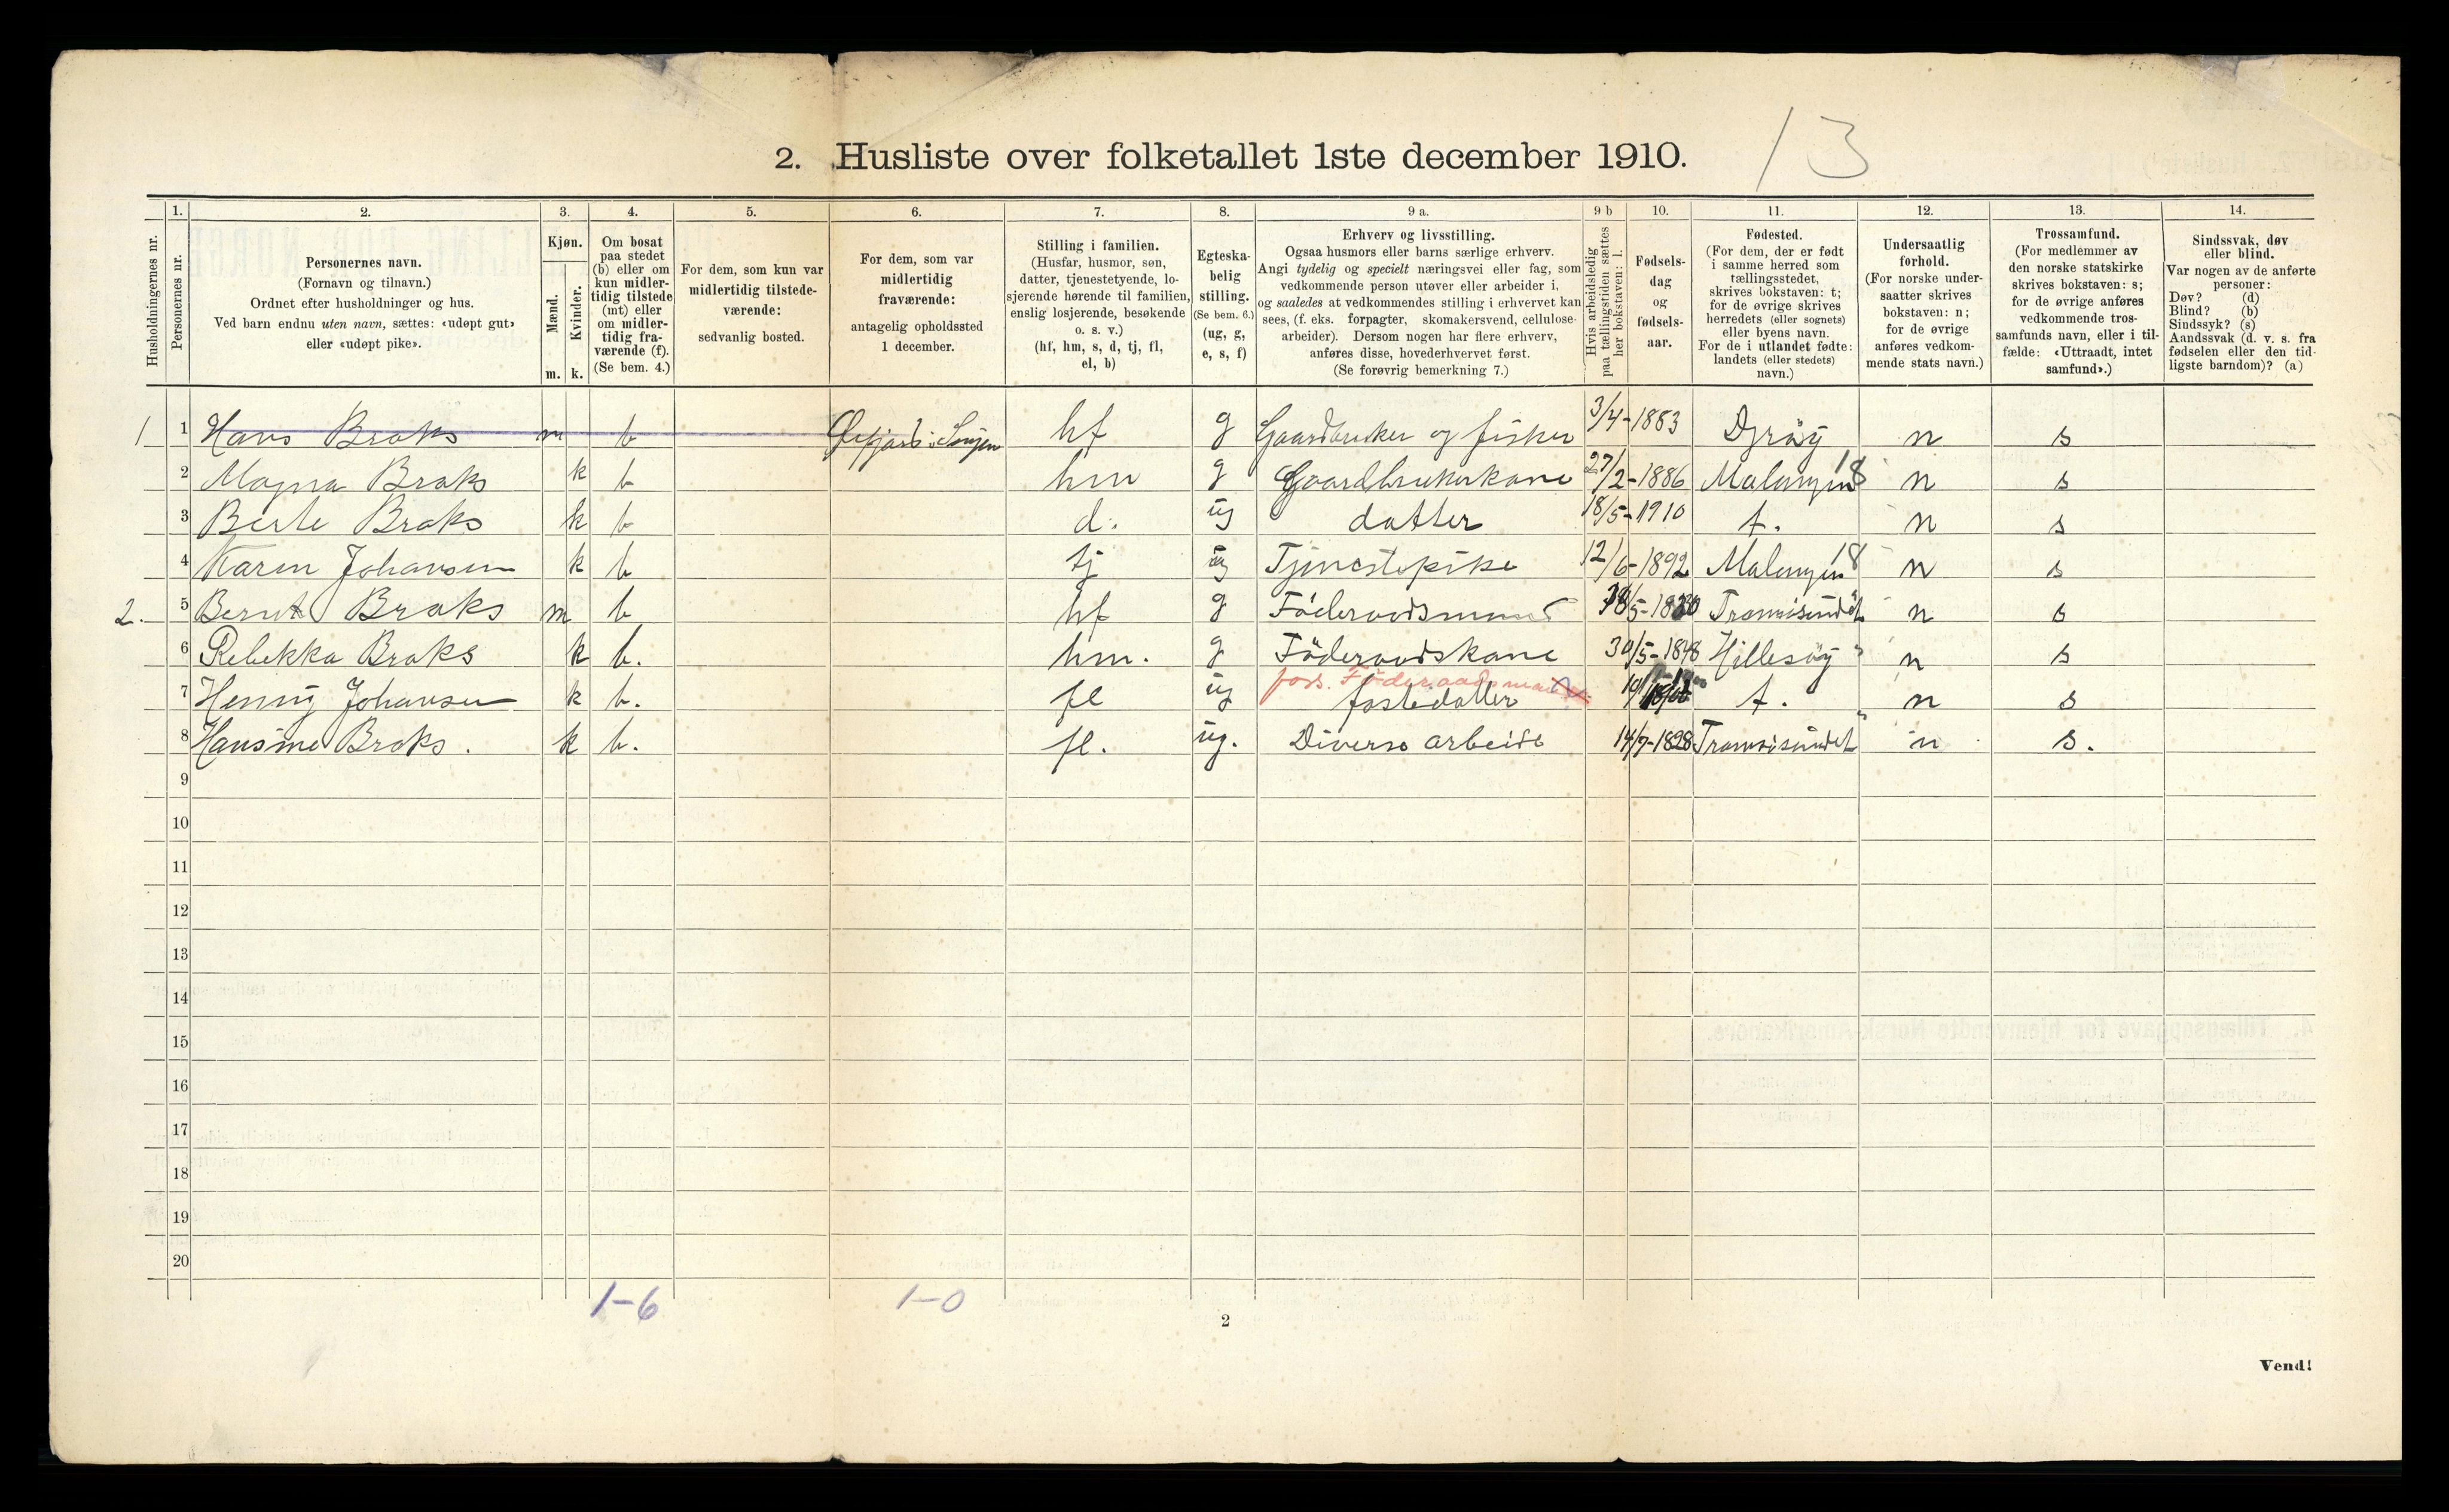 13
2. Husliste over folketallet 1ste december 1910.
Husholdningernes nr.
1. Personernes nr.
2. Personernes navn. (Fornavn og tilnavn.) Ordnet efter husholdninger og hus. Ved barn endnu uten navn, sættes: «udøpt gut» eller «udøpt pike».
3. Kjøn. Mænd. m. Kvinder. k.
4. Om bosat paa stedet (b) eller om kun midlertidig tilstede (mt) eller om midlertidig fraværende (f). (Se bem. 4.)
5. For dem, som kun var midlertidig tilstedeværende: sedvanlig bosted.
6. For dem, som var midlertidig fraværende: antagelig opholdssted 1 december.
7. Stilling i familien. (Husfar, husmor, søn, datter, tjenestetyende, losjerende hørende til familien, enslig losjerende, besøkende o. s. v.) (hf, hm, s, d, tj, fl, el, b)
8. Egteskabelig stilling. (Se bem. 6.) (ug, g, e, s, f)
9 a. Erhverv og livsstilling. Ogsaa husmors eller barns særlige erhverv. Angi tydelig og specielt næringsvei eller fag, som vedkommende person utøver eller arbeider i, og saaledes at vedkommendes stilling i erhvervet kan sees, (f. eks. forpagter, skomakersvend, cellulosearbeider). Dersom nogen har flere erhverv, anføres disse, hovederhvervet først. (Se forøvrig bemerkning 7.)
9 b Hvis arbeidsledig paa tællingstiden sættes her bokstaven: l.
10. Fødselsdag og fødselsaar.
11. Fødested. (For dem, der er født i samme herred som tællingsstedet, skrives bokstaven: t; for de øvrige skrives herredets (eller sognets) eller byens navn. For de i utlandet fødte: landets (eller stedets) navn.)
12. Undersaatlig forhold. (For norske undersaatter skrives bokstaven: n; for de øvrige anføres vedkommende stats navn.)
13. Trossamfund. (For medlemmer av den norske statskirke skrives bokstaven: s; for de øvrige anføres vedkommende trossamfunds navn, eller i tilfælde: «Uttraadt, intet samfund».)
14. Sindssvak, døv eller blind. Var nogen av de anførte personer: Døv? (d) Blind? (b) Sindssyk? (s) Aandssvak (d. v. s. fra fødselen eller den tidligste barndom)? (a)
1 1 Hans Braks m b hf g Gaardbruker og fisker 3/4-1883 Dyröy n s
2 Magna Braks k b hm g Gaardbrukerkone 27/2-1886 Malangen 18 n s
3 Berte Braks k b d. ug datter 18/5-1910 t. n s
4 Karen Johansen k b tj ug Tjenestepike 12/6-1892 Malangen 18 n s
2. 5 Bernt Braks m b hf g Föderaadsmand Tromsösundet n s
6 Rebekka Braks k b. hm. g Föderaadskone 30/5-1848 Hillesöy n s
fors. Föderaadsmand
7 Henny Johansen k b. fl ug fostedatter t. n s
8 Hansine Braks. k b. fl. ug. Diverse arbeide 14/7-1828 Tromsösundet n s.
9
10
11
12
13
14
15
16
17
18
19
20
1-6 1-0
2
Vend!